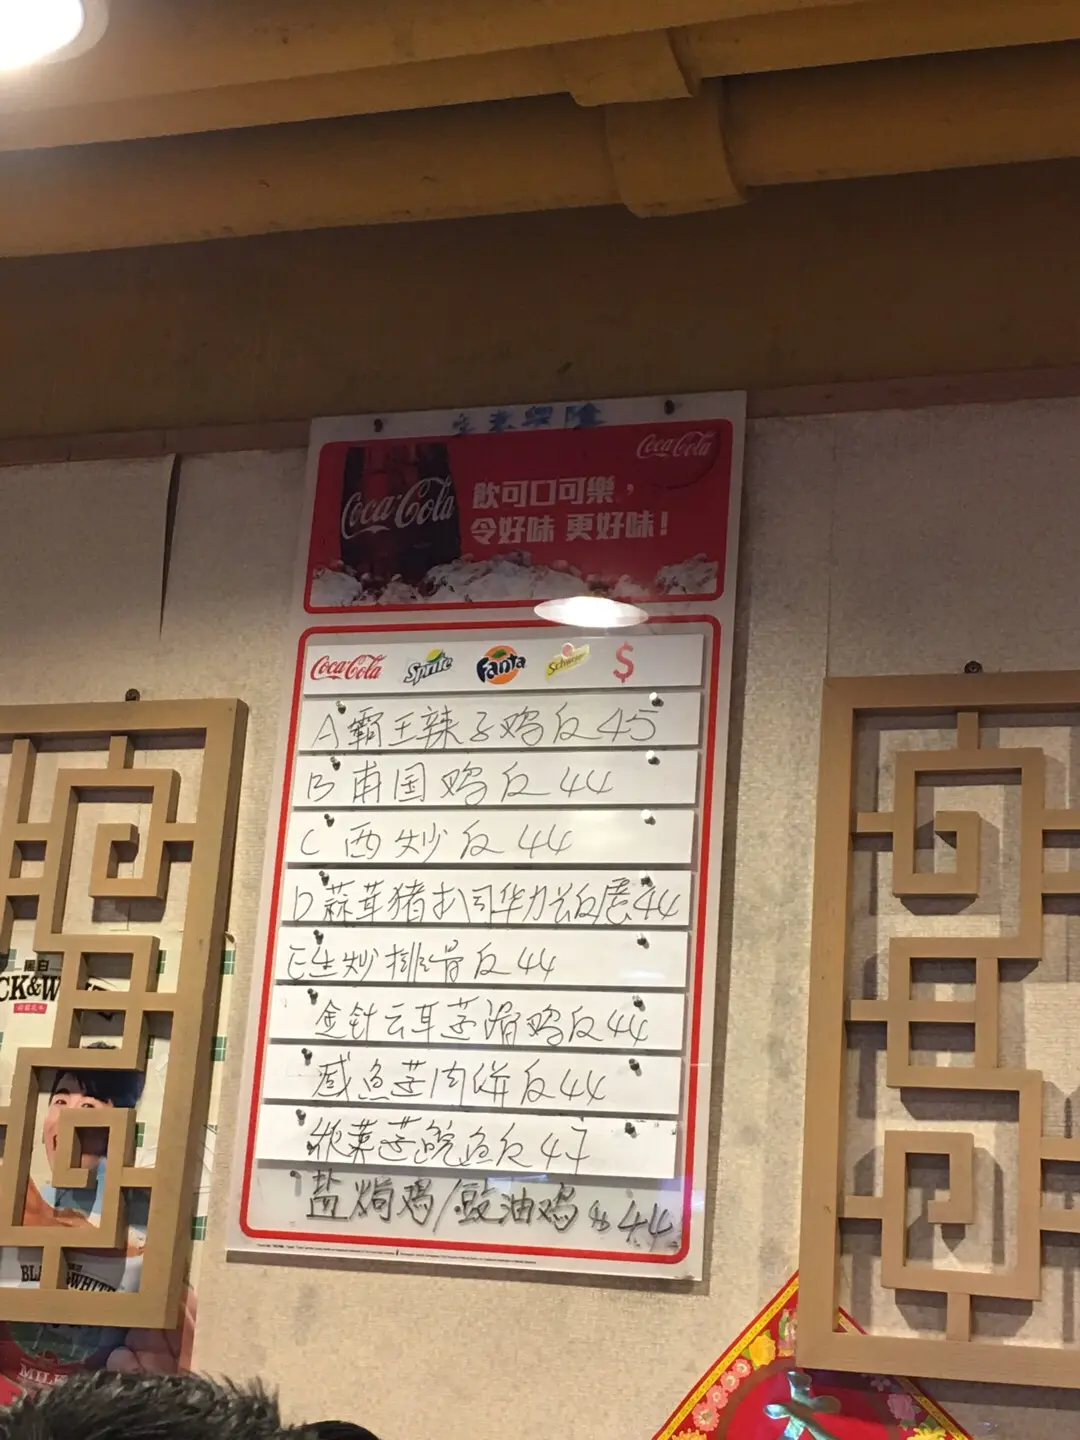 Coca-Cola
Coca-Cola
飲可口可樂，
令好味 更好味！
Coca-Cola Sprite Fanta Schweppes $
A霸王辣子鸡反45
B南国鸡反44
C西炒反44
D蒜茸猪扒司华力公反展44
E生炒排骨反44
金针云耳蒸滑鸡反44
咸鱼蒸肉饼反44
榨菜蒸鲩鱼反47
盐焗鸡/豉油鸡$44
黑白
CK&W
BLACK&WHITE
MILK